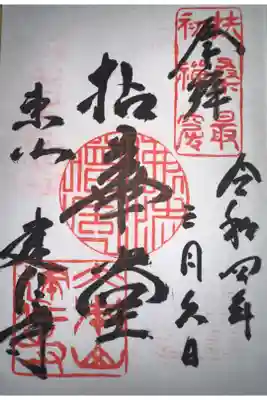 奉拝
扶桑最
初禪窟
令和四年
三月 日
拈華堂
東山 建仁寺